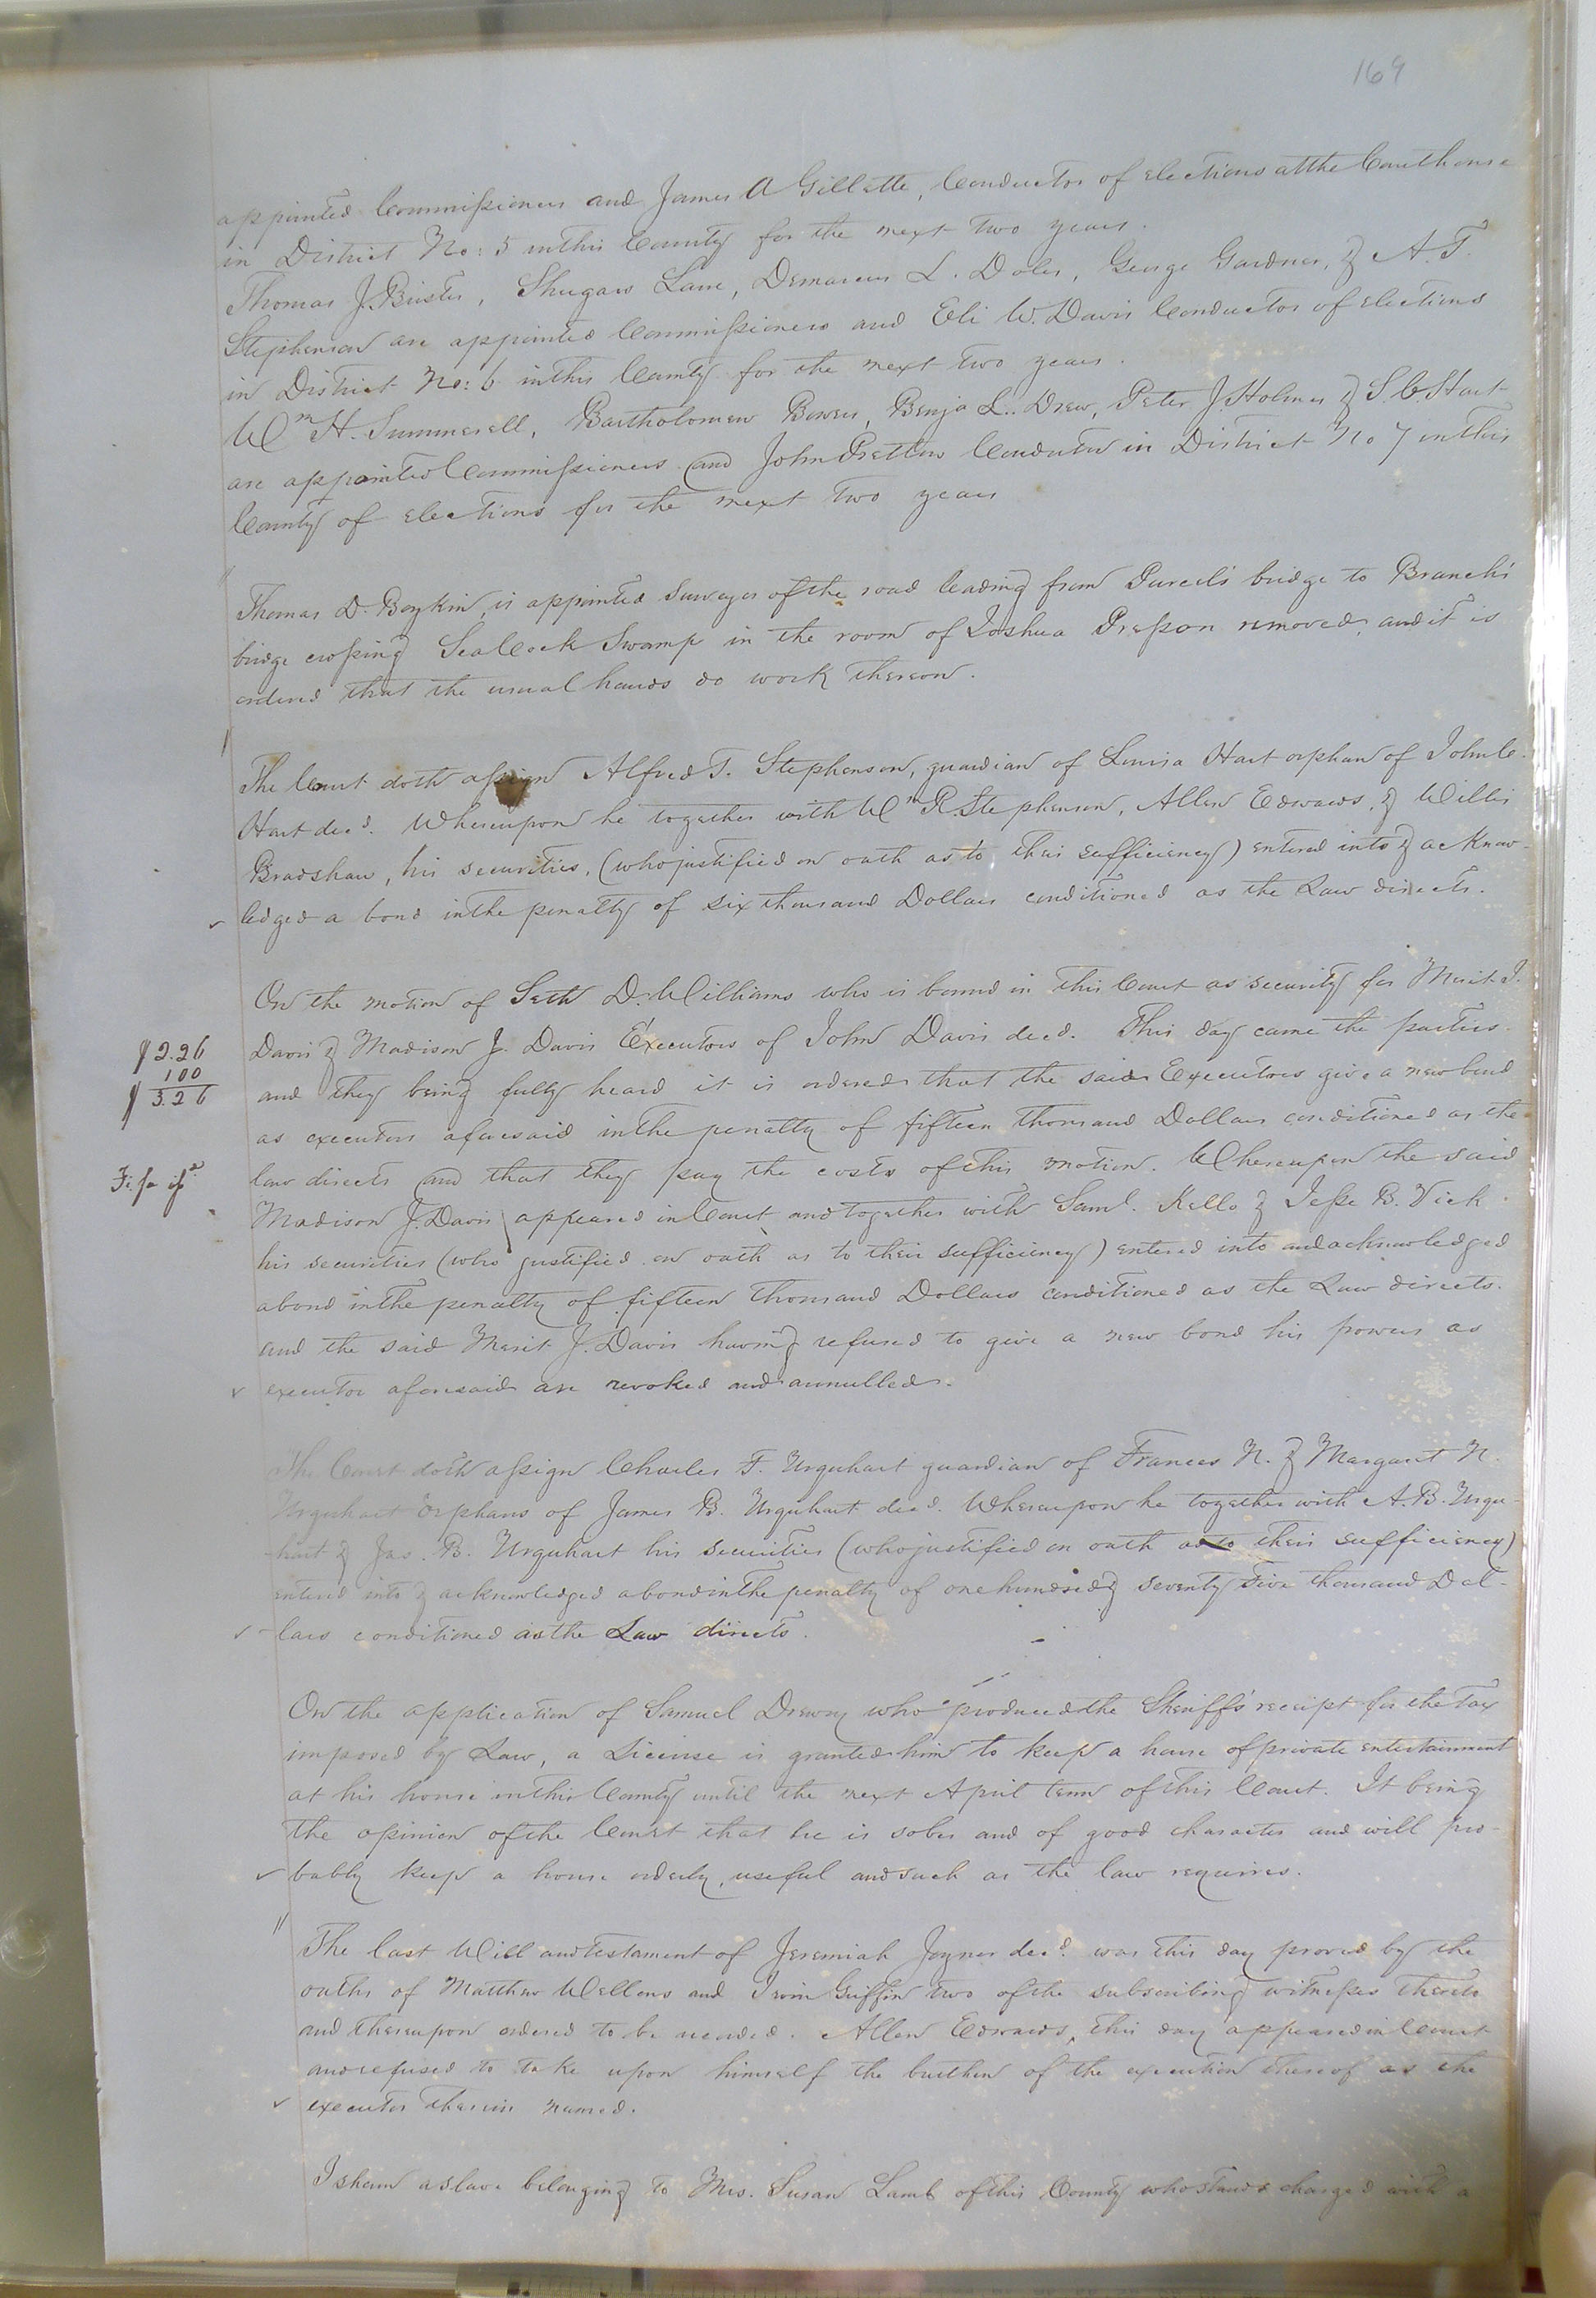 169
appointed Commissioners and James A Gillette, Conductor of elections at the Courthouse
in District No: 5 in this County for the next two years.
Thomas J. Bister, Shugars Lane, Demarcus L. Doles, George Gardner, & A. T.
Stephenson are appointed Commissioners and Eli W. Davis Conductor of elections
in District No: 6 in this County for the next two years.
Wm H. Summerell, Bartholomew Bowers, Benja L. Drew, Peter J. Holmes & S. C. Hart
are appointed Commissioners and John Pretlow Conductor in District No 7 in this
County of elections for the next two years
Thomas D. Boykin, is appointed Surveyor of the road leading from Purcel's bridge to Branch's
bridge crossing Seacock Swamp in the room of Joshua Presson removed, and it is
ordered that the usual hands do work thereon.
The Court doth assign Alfred T. Stephenson, guardian of Louisa Hart orphan of John C.
Hart decd. Whereupon he together with Wm R. Stephenson, Allen Edwards, & Willis
Bradshaw, his securities, (who justified on oath as to their sufficiency) entered into & acknow-
ledged a bond in the penalty of six thousand Dollars conditioned as the Law directs.
On the motion of Seth D. Williams who is bound in this Court as security for Merit J.
$2.26
Davis & Madison J. Davis Executors of John Davis decd. This day came the parties
100
$3.26
and they being fully heard it is ordered that the said Executors give a new bond
as executors aforesaid in the penalty of fifteen thousand Dollars conditioned as the
Fi. fa
law directs and that they pay the costs of this motion. Whereupon the said
Madison J. Davis appeared in Court and together with Saml. Kello & Jesse B. Vick
his securities (who justified on oath as to their sufficiency) entered into and acknowledged
a bond in the penalty of fifteen thousand Dollars conditioned as the Law directs.
and the said Merit J. Davis having refused to give a new bond his powers as
executor aforesaid are revoked and annulled.
The Court doth assign Charles F. Urquhart guardian of Frances N. & Margaret N.
Urquhart orphans of James B. Urquhart decd. Whereupon he together with A. B. Urqu-
hart & Jas. B. Urquhart his securities (who justified on oath as to their sufficiency)
entered into & acknowledged a bond in the penalty of one hundred & seventy five thousand Dol-
lars conditioned as the Law directs.
On the application of Samuel Drewry who produced the Sheriff's receipt for the Tax
imposed by Law, a License is granted him to keep a house of private entertainment
at his house in this County until the next April term of this Court. It being
the opinion of the Court that he is sober and of good character and will pro-
bably keep a house orderly, useful and such as the law requires.
The last Will and testament of Jeremiah Joyner decd. was this day proved by the
oaths of Matthew Wellons and Irvin Griffin two of the subscribing witnesses thereto
and thereupon ordered to be recorded. Allen Edwards, this day appeared in Court
and refused to take upon himself the burthen of the execution thereof as the
executor therein named.
Isham a slave belonging to Mrs. Susan Lamb of this County who stands charged with a